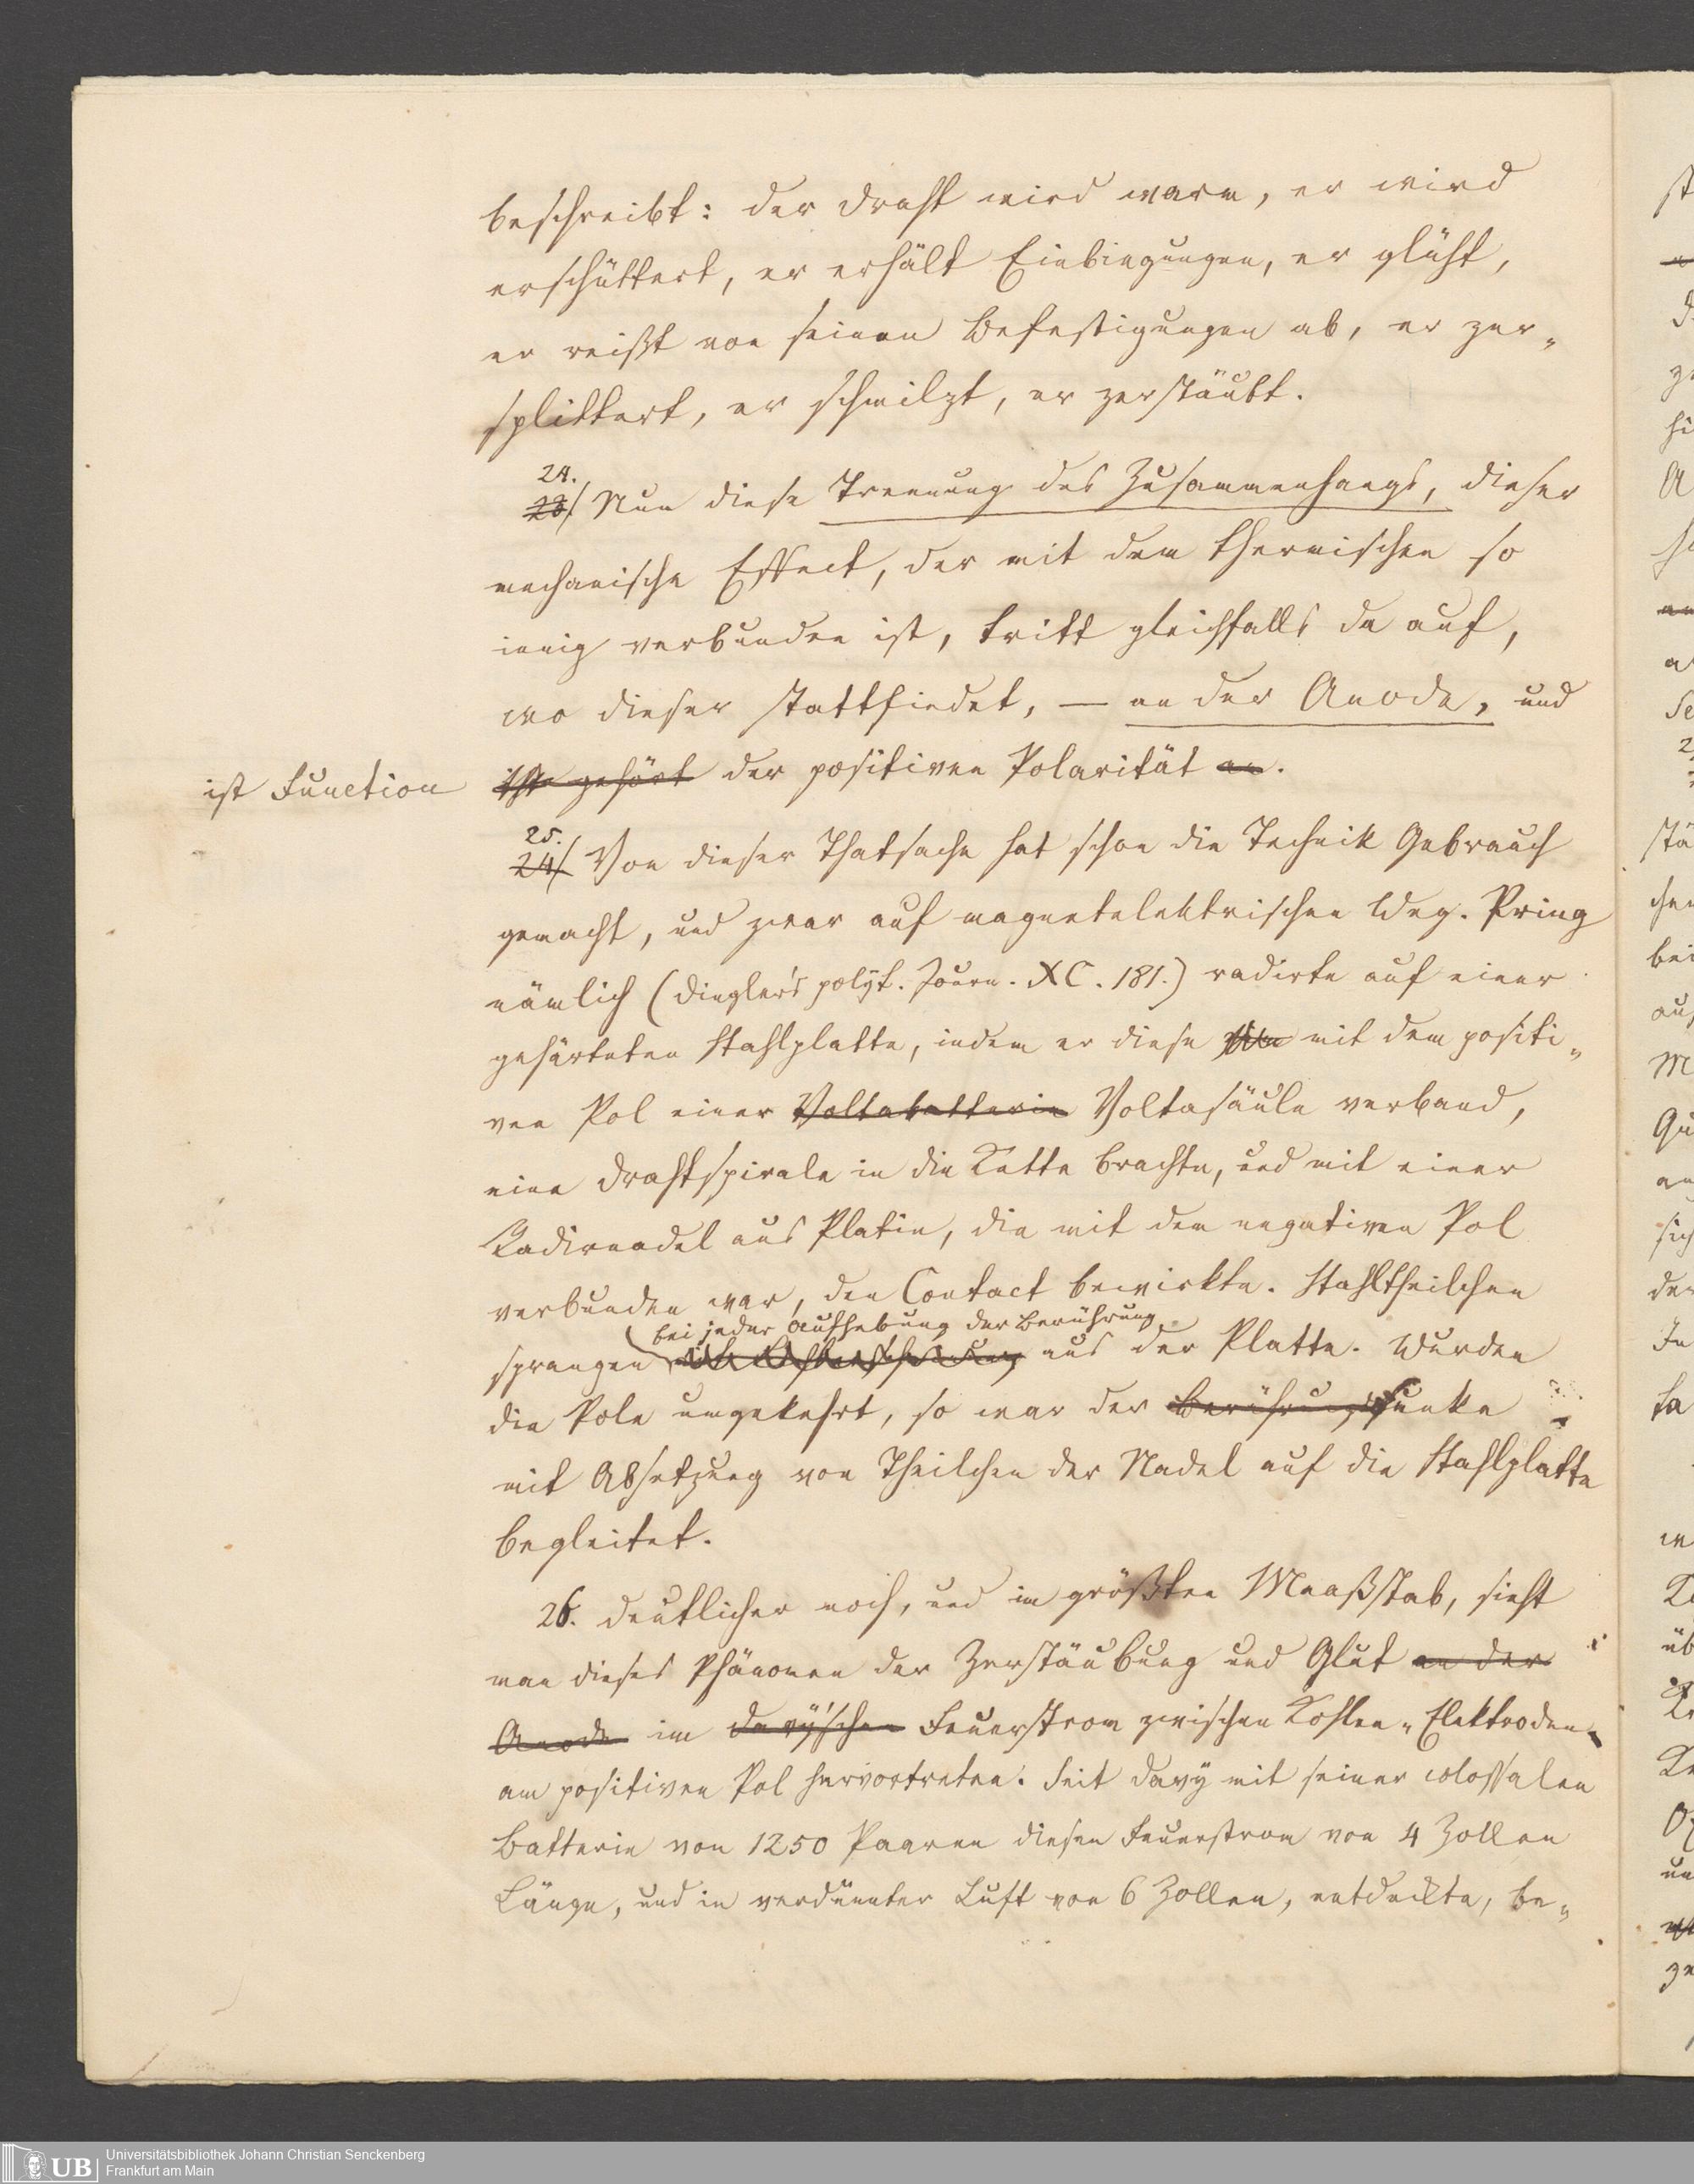 beschreibt: der Draht wird warm, er wird
erschüttert, er erhält Einbiegungen, er glüht,
er reißt von seinen Befestigungen ab, er zer„
splittert, er schmilzt, er zerstäubt.
24.
23/ Nun diese Trennung des Zusammenhangs, dieser
mechanische Effect, der mit dem thermischen so
innig verbunden ist, tritt gleichfalls da auf,
wo dieser stattfindet, — an der Anode, und
ist Function
gehört der positiven Polarität an.
25.
24/. Von dieser Thatsache hat schon die Technik Gebrauch
gemacht, und zwar auf magnetelektrischen Weg. Pring
nämlich (Dingler's polyt. Journ. XC. 181.) radirte auf einer
gehärteten Stahlplatte, indem er diese mit dem positi„
ven Pol einer Voltabatterie Voltasäule verband,
eine Drahtspirale in die Kette brachte, und mit einer
Radirnadel aus Platin, die mit dem negativen Pol
verbunden war, den Contact bewirkte. Stahltheilchen
bei jeder Aufhebung der Berührung
sprangen aus der Platte. Wurden
die Pole umgekehrt, so war der Berührungsfunke
mit Absetzung von Theilchen der Nadel auf die Stahlplatte
begleitet.
26. Deutlicher noch, und im größten Maaßstab, sieht
man dieses Phänomen der Zerstäubung und Glut an der
Anode im Davy'schen Feuerstrom zwischen Kohlen„Elektroden
am positiven Pol hervortreten. Seit Davy mit seiner colossalen
Batterie von 1250 Paaren diesen Feuerstrom von 4 Zollen
Länge, und in verdünnter Luft von 6 Zollen, entdeckte, be„
UB Universitätsbibliothek Johann Christian Senckenberg
Frankfurt am Main